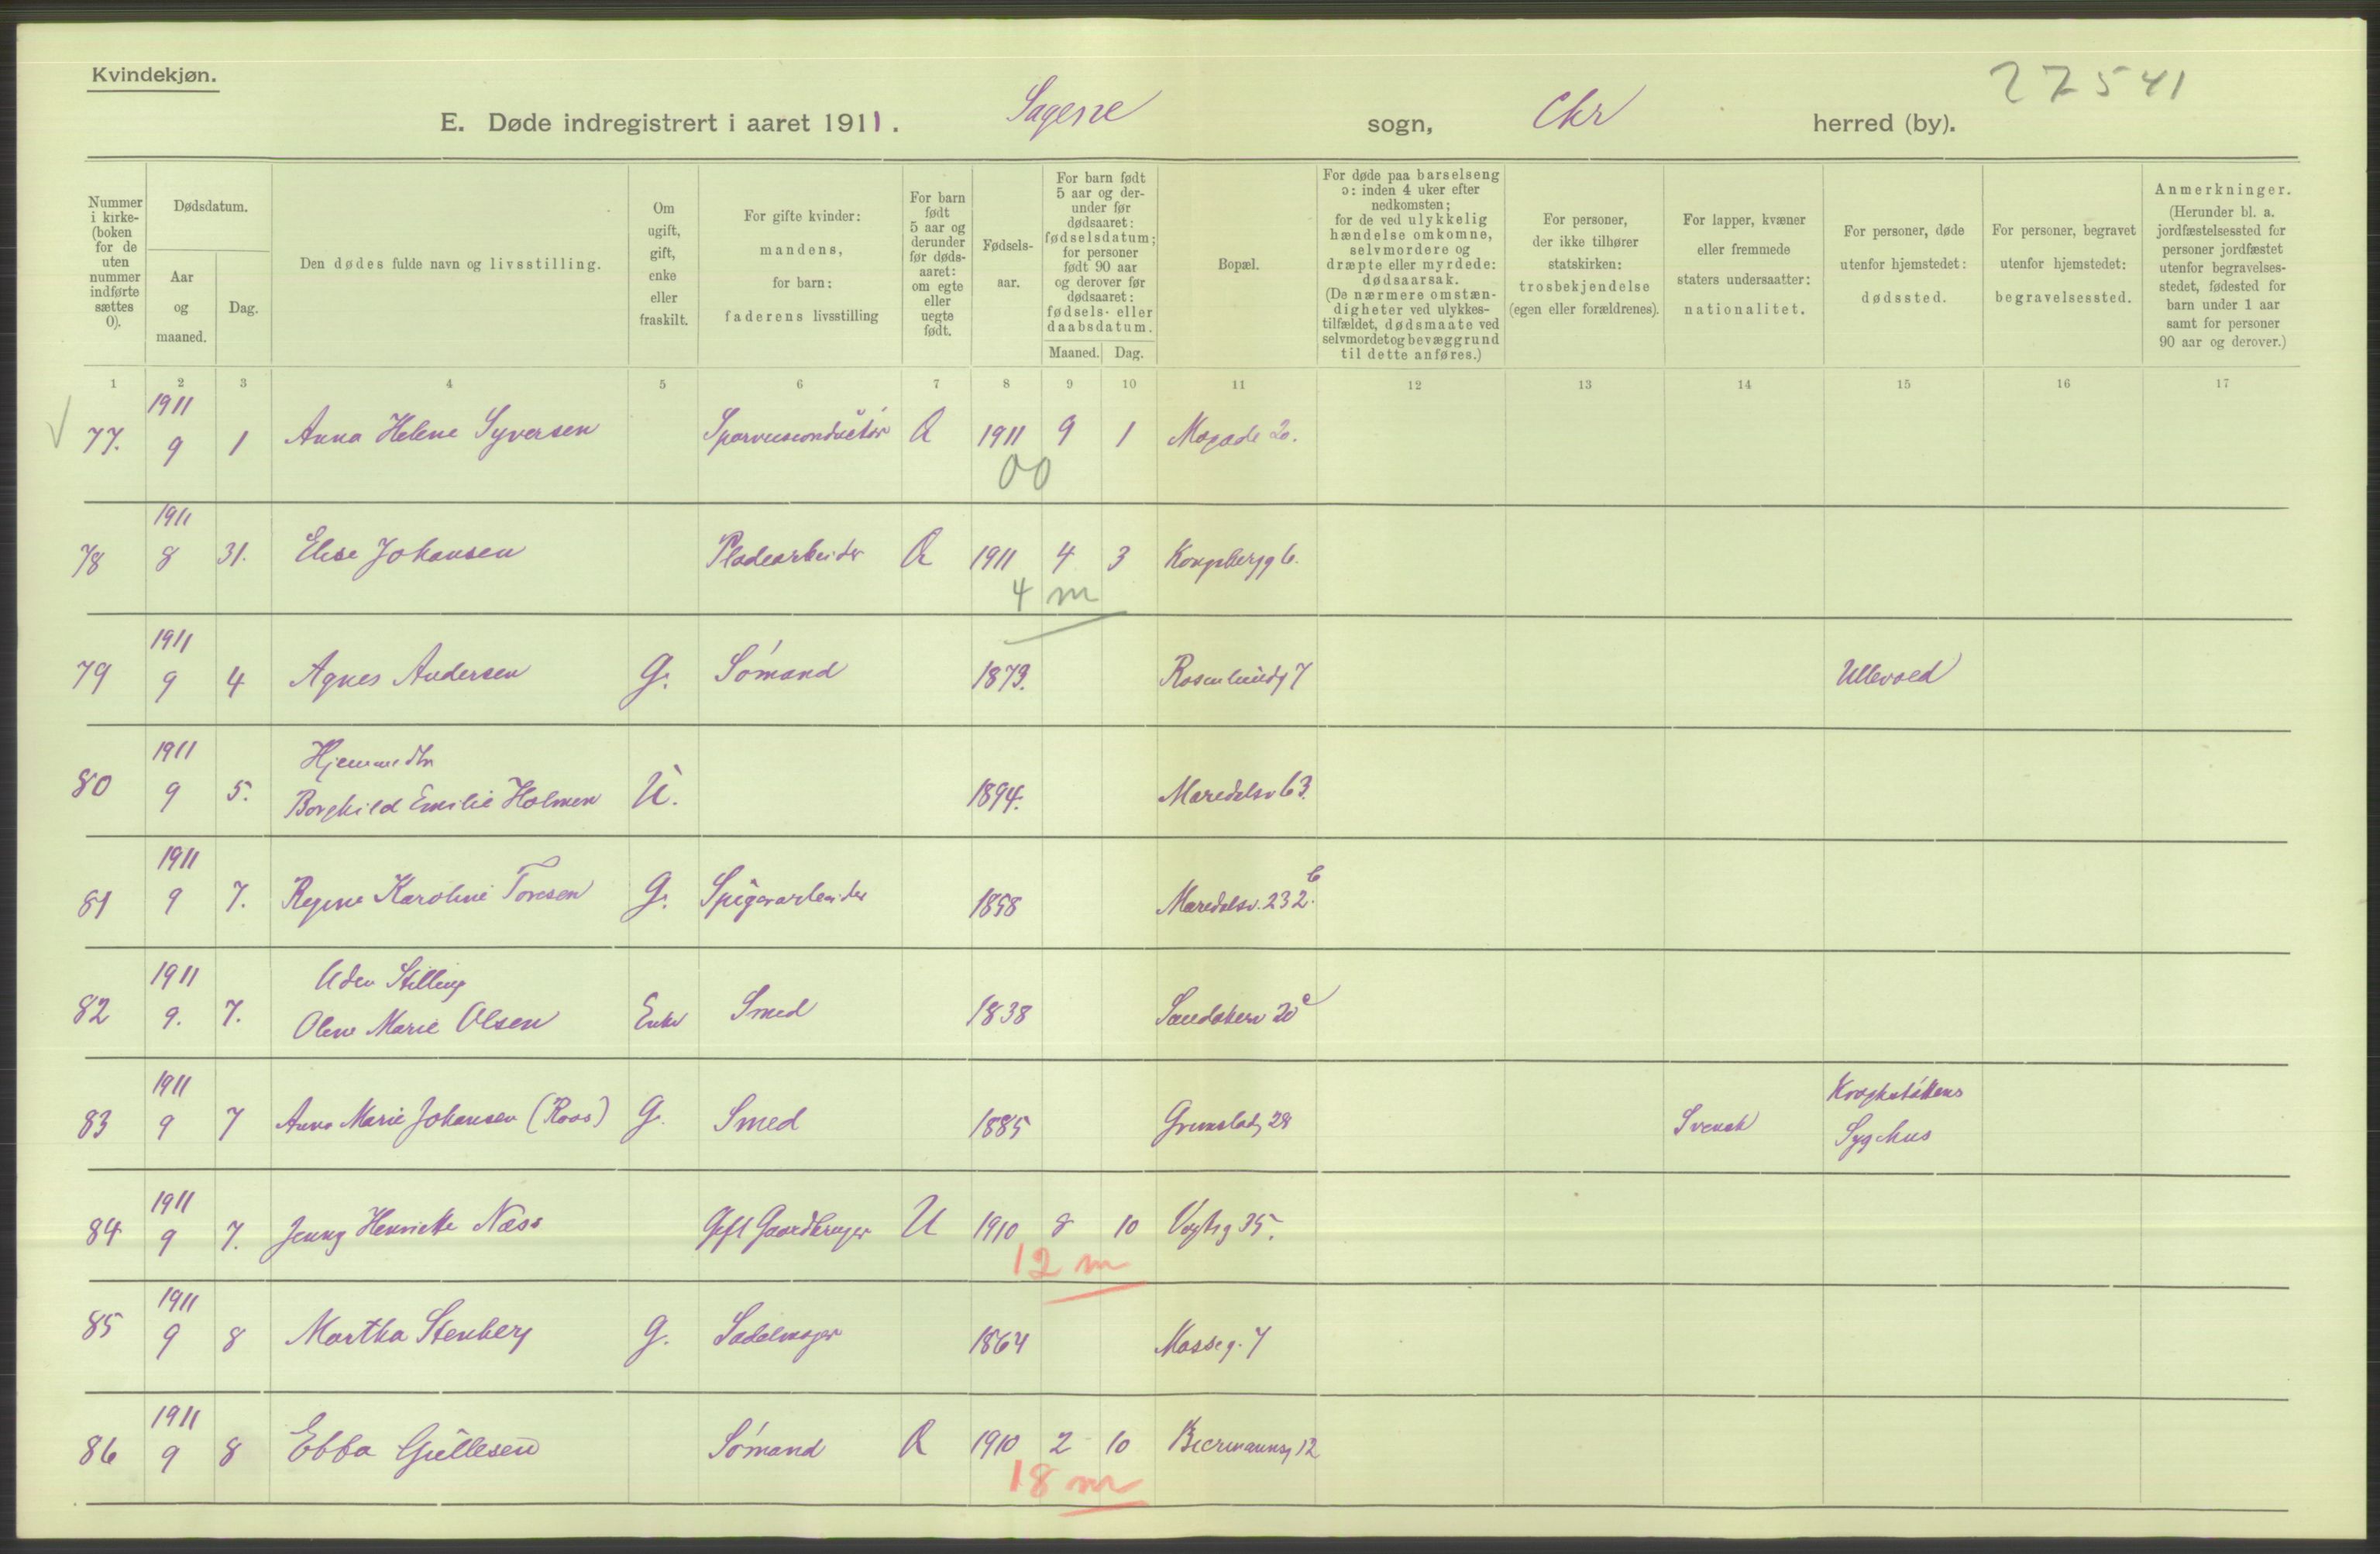 Kvindekjøn.
22541
E. Døde indregistrert i aaret 1911. Sagene sogn, Chr herred (by).
Nummer i kirke- (boken for de uten nummer indførte sættes 0).
Dødsdatum.
Aar og maaned.
Dag.
Den dødes fulde navn og livsstilling.
Om ugift, gift, enke eller fraskilt.
For gifte kvinder: mandens, for barn: faderens livsstilling
For barn født 5 aar og derunder før døds- aaret: om egte eller uegte født.
Fødsels- aar.
For barn født 5 aar og der- under før dødsaaret: fødselsdatum; for personer født 90 aar og derover før dødsaaret: fødsels- eller daabsdatum.
Maaned. Dag.
Bopæl.
For døde paa barselseng ɔ: inden 4 uker efter nedkomsten; for de ved ulykkelig hændelse omkomne, selvmordere og dræpte eller myrdede: dødsaarsak. (De nærmere omstæn- digheter ved ulykkes- tilfældet, dødsmaate ved selvmordet og bevæggrund til dette anføres.)
For personer, der ikke tilhører statskirken: trosbekjendelse (egen eller forældrenes).
For lapper, kvæner eller fremmede staters undersaatter: nationalitet.
For personer, døde utenfor hjemstedet: dødssted.
For personer, begravet utenfor hjemstedet: begravelsessted.
Anmerkninger. (Herunder bl. a. jordfæstelsessted for personer jordfæstet utenfor begravelses- stedet, fødested for barn under 1 aar samt for personer 90 aar og derover.)
1 2 3 4 5 6 7 8 9 10 11 12 13 14 15 16 17
1911
77. 9 1 Anna Helene Syversen Sporveisconductør 1911 9 1 Mogade 20.
00
1911
78 8 31. Elise Johansen Pladearbeider 1911 4 3 Kongsbergg 6.
4 m
1911
79 9 4 Agnes Andersen G. Sømand 1879. Rosenlundg 7 Ullevold
1911 Hjemmedtr
80 9 5. Borghild Emilie Holmen U. 1894. Maredalsv 63.
1911
81 9 7. Regine Karoline Toresen G. Spigerarbeider 1858 Maredalsv. 232 b.
1911 Uden Stilling
82 9. 7. Oline Marie Olsen Enke Smed 1838 Sandakerv 20 c
1911
83 9 7 Anna Marie Johansen (Roos) G. Smed 1885 Grimstadg 28 Svensk Krogstøttens Sygehus
1911
84 9 7. Jenny Henriette Næss Gift Gaardbruger U 1910 8 10 Vogtsg 35.
12 m
1911
85 9 8 Martha Stenberg G. Sadelmager 1864 Mosseg. 7
1911
86 9 8 Ebba Gullesen Sømand 1910 2 10 Biermannsg 12
18 m